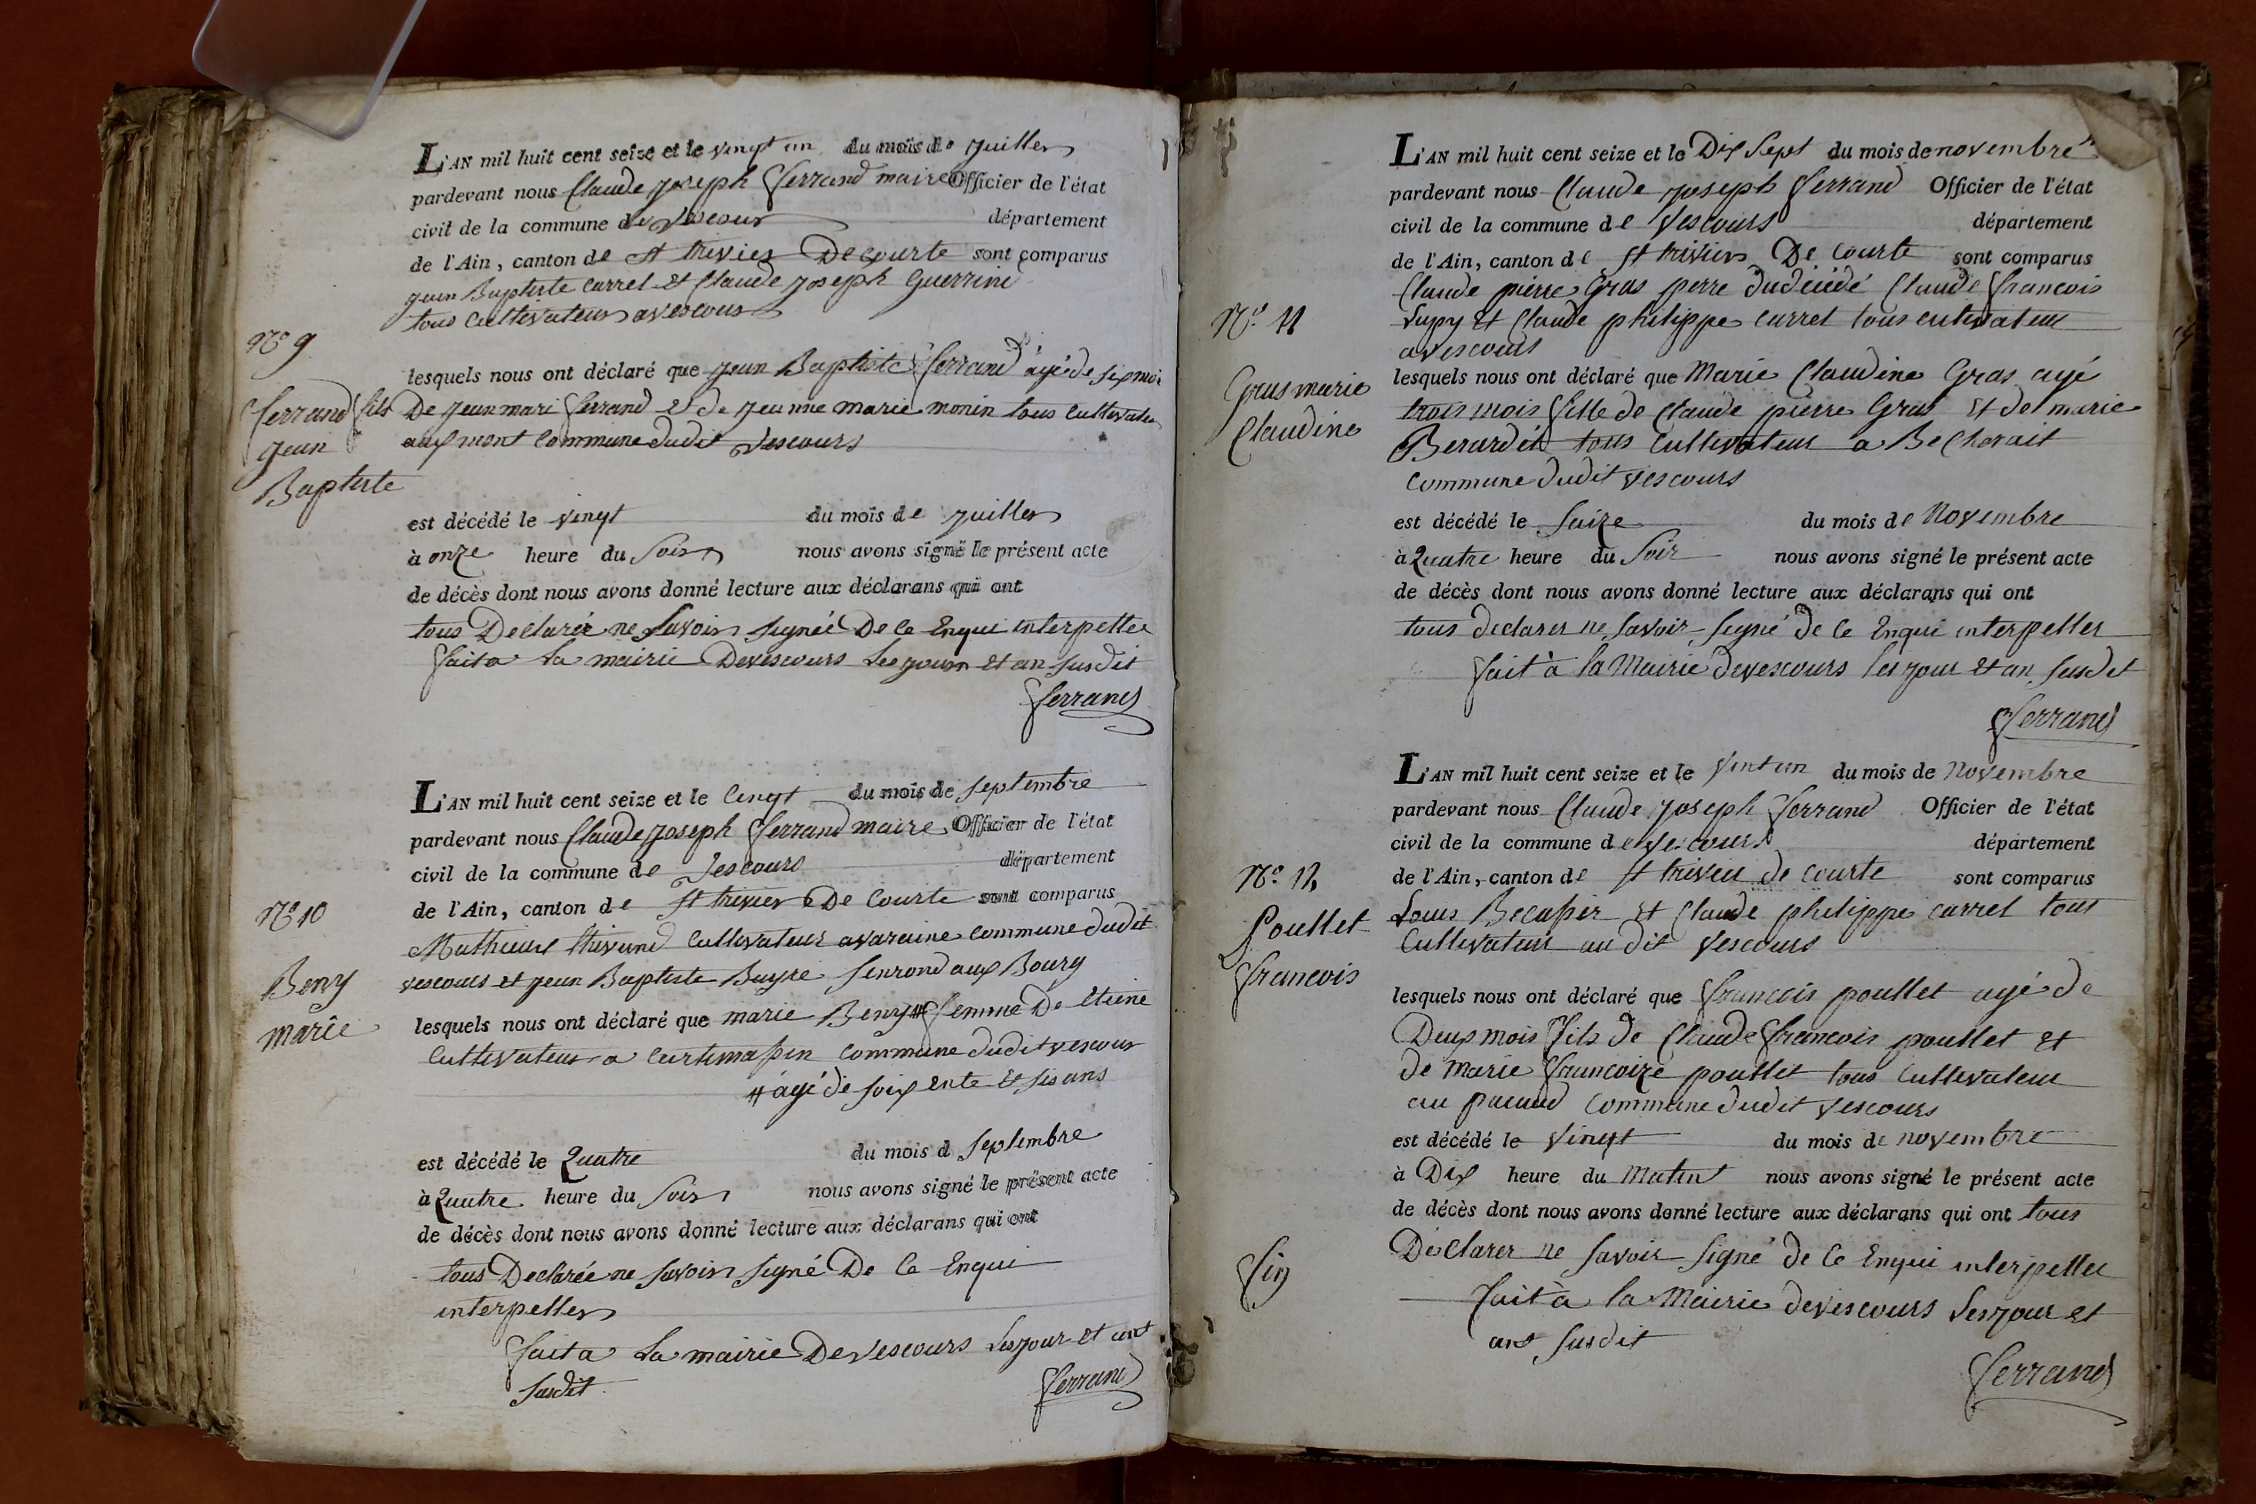 L'AN mil huit cent seize et le vingt un du mois de juillet
pardevant nous Claude joseph ferrand maire Officier de l'état
civil de la commune de Vescour département
de l'Ain, canton de st trivier De Courte sont comparus
jean Baptiste carrel et Claude joseph Guerrin
tous cultivateur a vescour
N° 9
ferrand fils
jean
Baptiste
lesquels nous ont déclaré que jean Baptiste ferrand âgé de six moi
De jean mari ferrand et de jeanne marie monin tous cultivateu
aux mont commune dudit Vescours
est décédé le vingt du mois de juillet
à onze heure du soir nous avons signé le présent acte
de décès dont nous avons donné lecture aux déclarans qui ont
tous Declarée ne savoir signée De ce Enqui interpellee
fait a la mairie De vescours les jour et an susdit
ferrand
L'AN mil huit cent seize et le cinqt du mois de septembre
pardevant nous Claude joseph ferrand maire Officier de l'état
civil de la commune de Vescours département
de l'Ain, canton de st trivier De Courte sont comparus
N° 10
Mathieux thivand cultivateur a varaine commune dudit
vescours et jean Baptiste Buyre aux Bourg
Beny
marie
lesquels nous ont déclaré que marie Beny # femme De Etiene
cultivateur a commune dudit vescour
# âgé de soixente et sis ans
est décédé le Quatre du mois d septembre
à Quatre heure du soir nous avons signé le présent acte
de décès dont nous avons donné lecture aux déclarans qui ont
tous Declarée ne savoir signé De ce Enqui
interpeller
fait a La mairie De vescours les jour et ant
susdit
ferrand
L'AN mil huit cent seize et le Dix sept du mois de novembre
pardevant nous Claude joseph ferrand Officier de l'état
civil de la commune de Vescours département
de l'Ain, canton de st trivier De Courte sont comparus
Claude pierre Gras perre dudécédé Claude francois
N° 11
Lupy et Claude philippe carrel tous cultivateur
a vescours
Gras marie
Claudine
lesquels nous ont déclaré que Marie Claudine Gras agé
trois mois fille de Claude pierre Gras et de marie
Berardet tous cultivateur a Becherait
commune dudit vescours
est décédé le saize du mois de Novembre
à Quatre heure du soir nous avons signé le présent acte
de décès dont nous avons donné lecture aux déclarans qui ont
tous declarer ne savoir signé de ce Enqui interpeller
fait à la Mairie de vescours les jour et an susdit
ferrand
L'AN mil huit cent seize et le vint un du mois de Novembre
pardevant nous Claude joseph ferrand Officier de l'état
civil de la commune de vescours département
N° 12
de l'Ain, canton de st trivier de courte sont comparus
Poullet
francois
Louis Becassier et Claude philippe carrel tous
cultivateur au dit vescours
lesquels nous ont déclaré que francois poullet agé de
Deux mois fils de Claude francois poullet et
de marie francoize poullet tous cultivateur
au pacaud commune dudit vescours
est décédé le vingt du mois de novembre
à Dix heure du Matin nous avons signé le présent acte
de décès dont nous avons donné lecture aux déclarans qui ont tous
Déclarer ne savoir signé de ce Enqui interpeller
fin
fait a la Mairie de vescours les jour et
ant susdit
ferrand